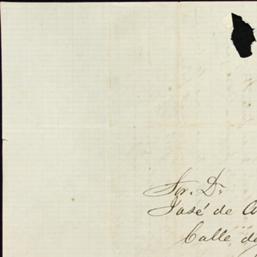 Sor. Dn.
José de
Calle de